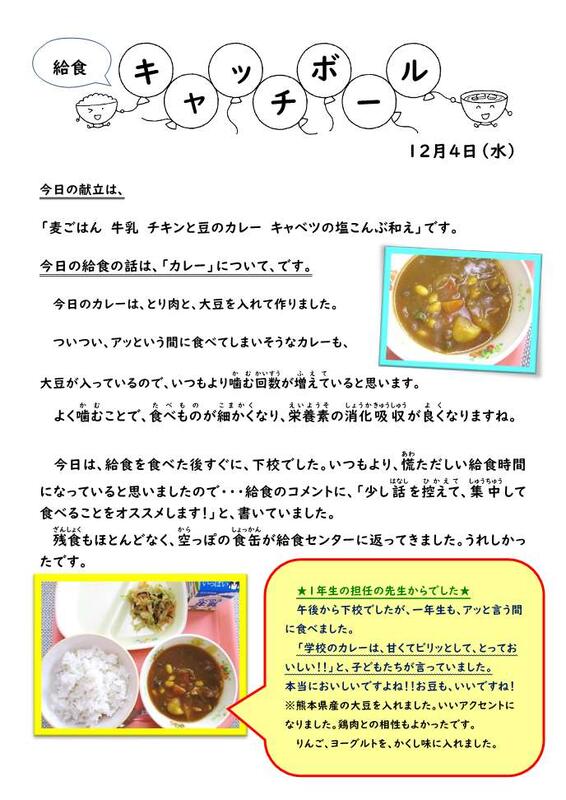 給食
キャッチボール
12月4日(水)
今日の献立は、
「麦ごはん 牛乳 チキンと豆のカレー キャベツの塩こんぶ和え」です。
今日の給食の話は、「カレー」について、です。
今日のカレーは、とり肉と、大豆を入れて作りました。
ついつい、アッという間に食べてしまいそうなカレーも、
かむかいすう ふえて
大豆が入っているので、いつもより噛む回数が増えていると思います。
かむ たべもの こまかく えいようそ しょうかきゅうしゅう よく
よく噛むことで、食べものが細かくなり、栄養素の消化吸収が良くなりますね。
あわ
今日は、給食を食べた後すぐに、下校でした。いつもより、慌ただしい給食時間
はなし ひかえて しゅうちゅう
になっていると思いましたので・・・給食のコメントに、「少し話を控えて、集中して
食べることをオススメします!」と、書いていました。
ざんしょく から しょっかん
残食もほとんどなく、空っぽの食缶が給食センターに返ってきました。うれしかっ
たです。
★1年生の担任の先生からでした★
午後から下校でしたが、一年生も、アッと言う間
に食べました。
「学校のカレーは、甘くてピリッとして、とってお
いしい!!」と、子どもたちが言っていました。
本当においしいですよね!!お豆も、いいですね!
※熊本県産の大豆を入れました。いいアクセントに
なりました。鶏肉との相性もよかったです。
りんご、ヨーグルトを、かくし味に入れました。